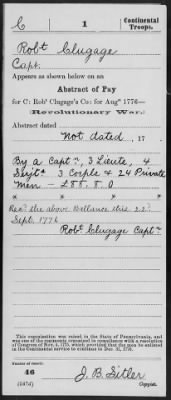 C
1
Continental Troops.
Robt Clugage
Capt.
Appears as shown below on an
Abstract of Pay
for C: Robt Clugage's Co: for Augt 1776—
(Revolutionary War.)
Abstract dated
Not dated, 17 .
By a Captn, 3 Lieuts, 4
Serjts 3 Corpls & 24 Private
Men - £88. 8. 0
Recd the above Ballance this 22d
Sept. 1776
Robt Clugage Captn
This organization was raised in the State of Pennsylvania, and was one of the regiments continued in compliance with a resolution of Congress of Nov. 4, 1775, which provided that the men be enlisted in the Continental service to continue to Dec. 31, 1776.
Number of record:
46
(547d)
J. B. Sitler
Copyist.